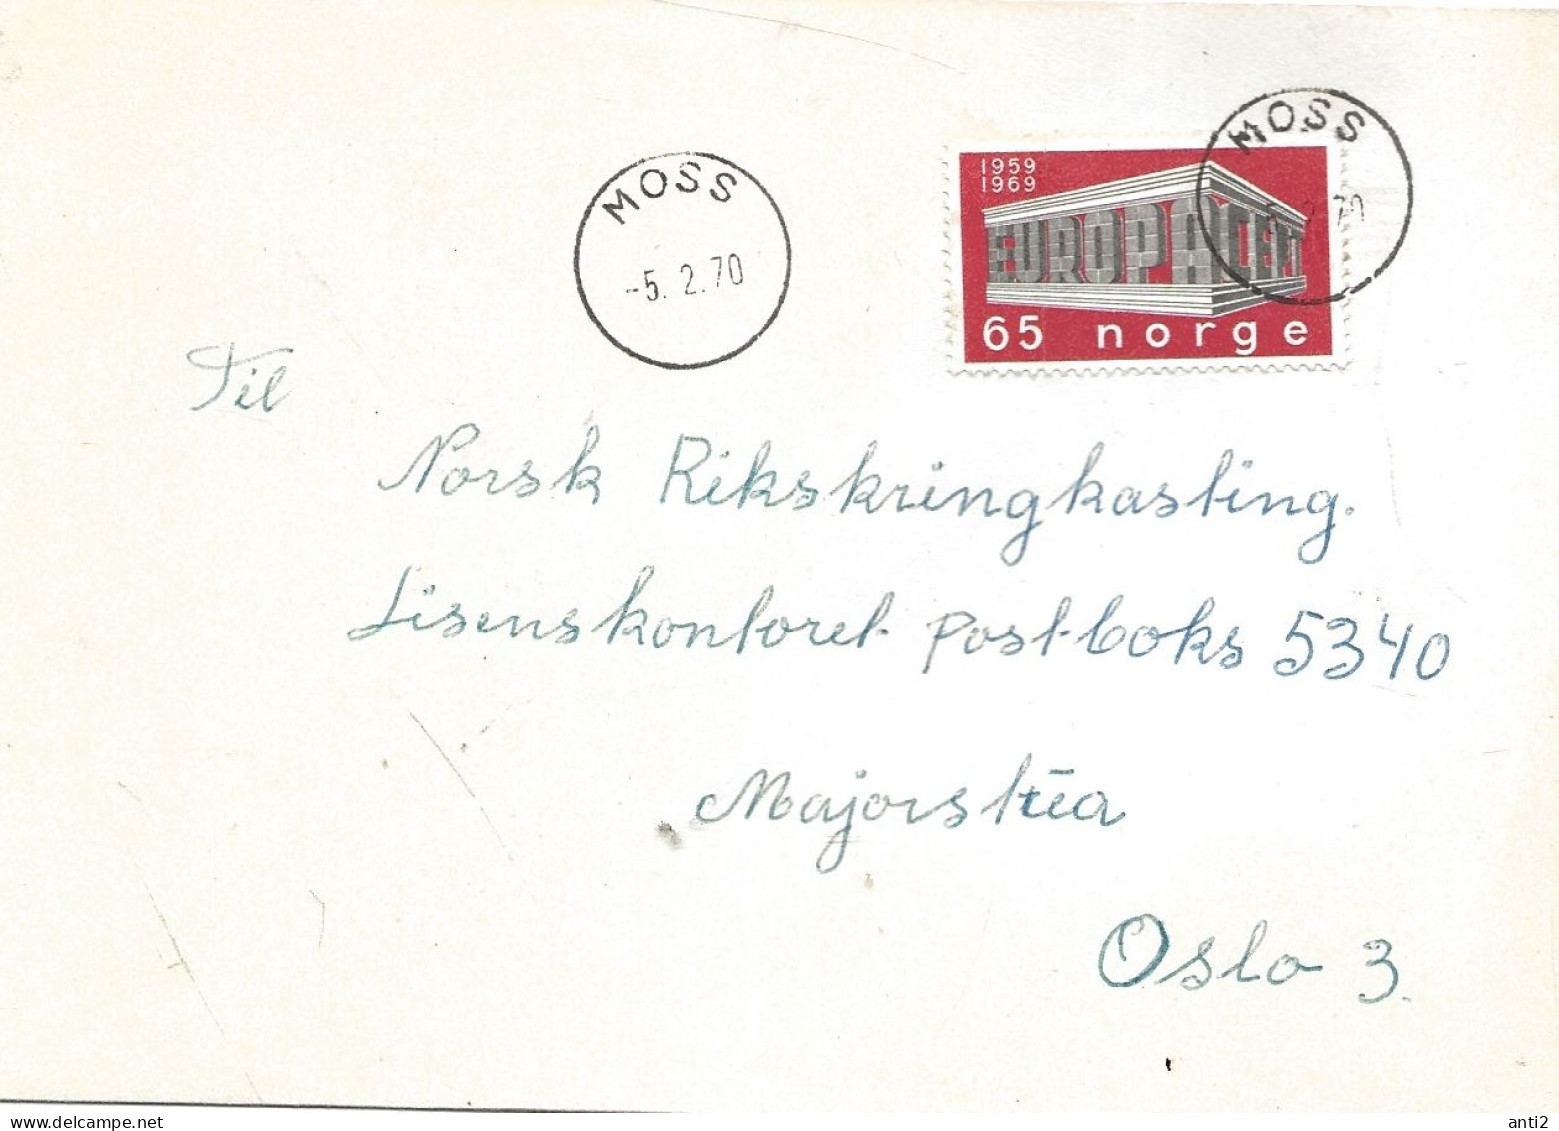 MOSS
-5. 2.70
MOSS
70
1959
1969
EUROPA CEPT
65 norge
Til
Norsk Rikskringkasting.
Lisenskontoret Postboks 5340
Majorstūa
Oslo 3.
www.delcampe.net
anti2